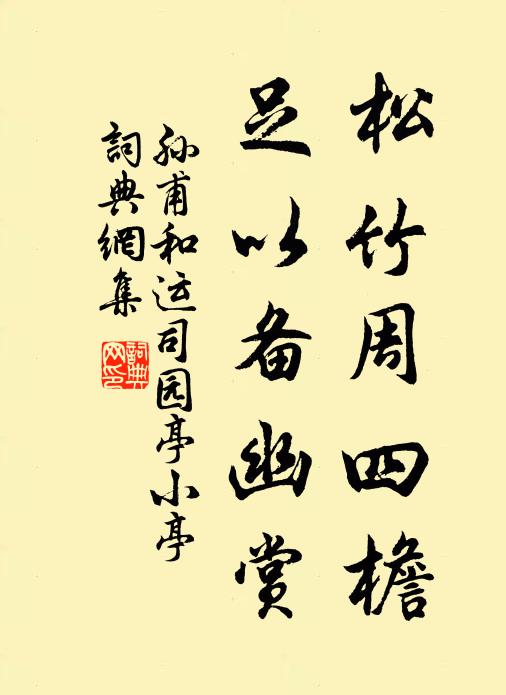 松竹周四檐
足以备幽赏
孙甫和运司园亭小亭
詞典網集
詞典网印